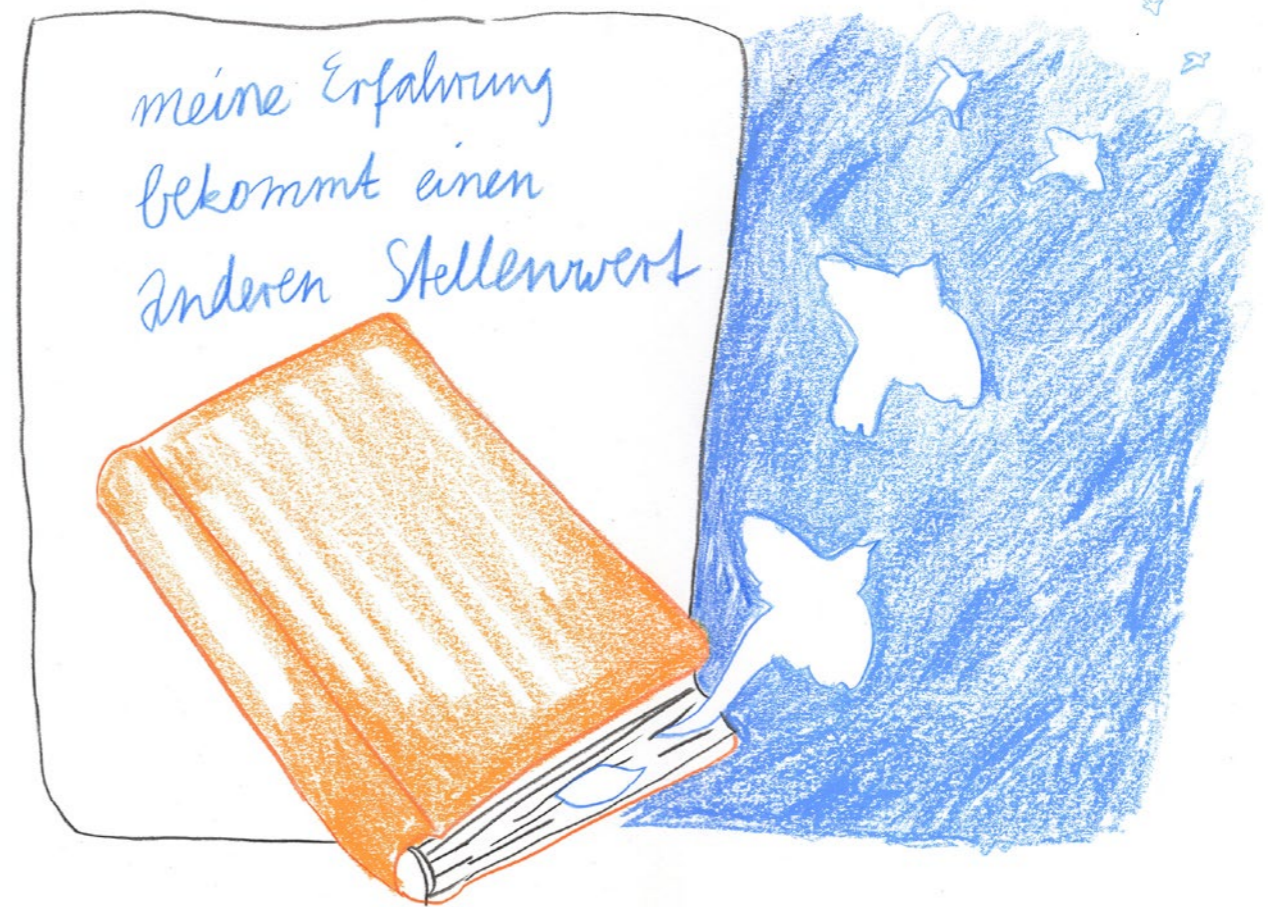 meine Erfahrung
bekommt einen
anderen Stellenwert